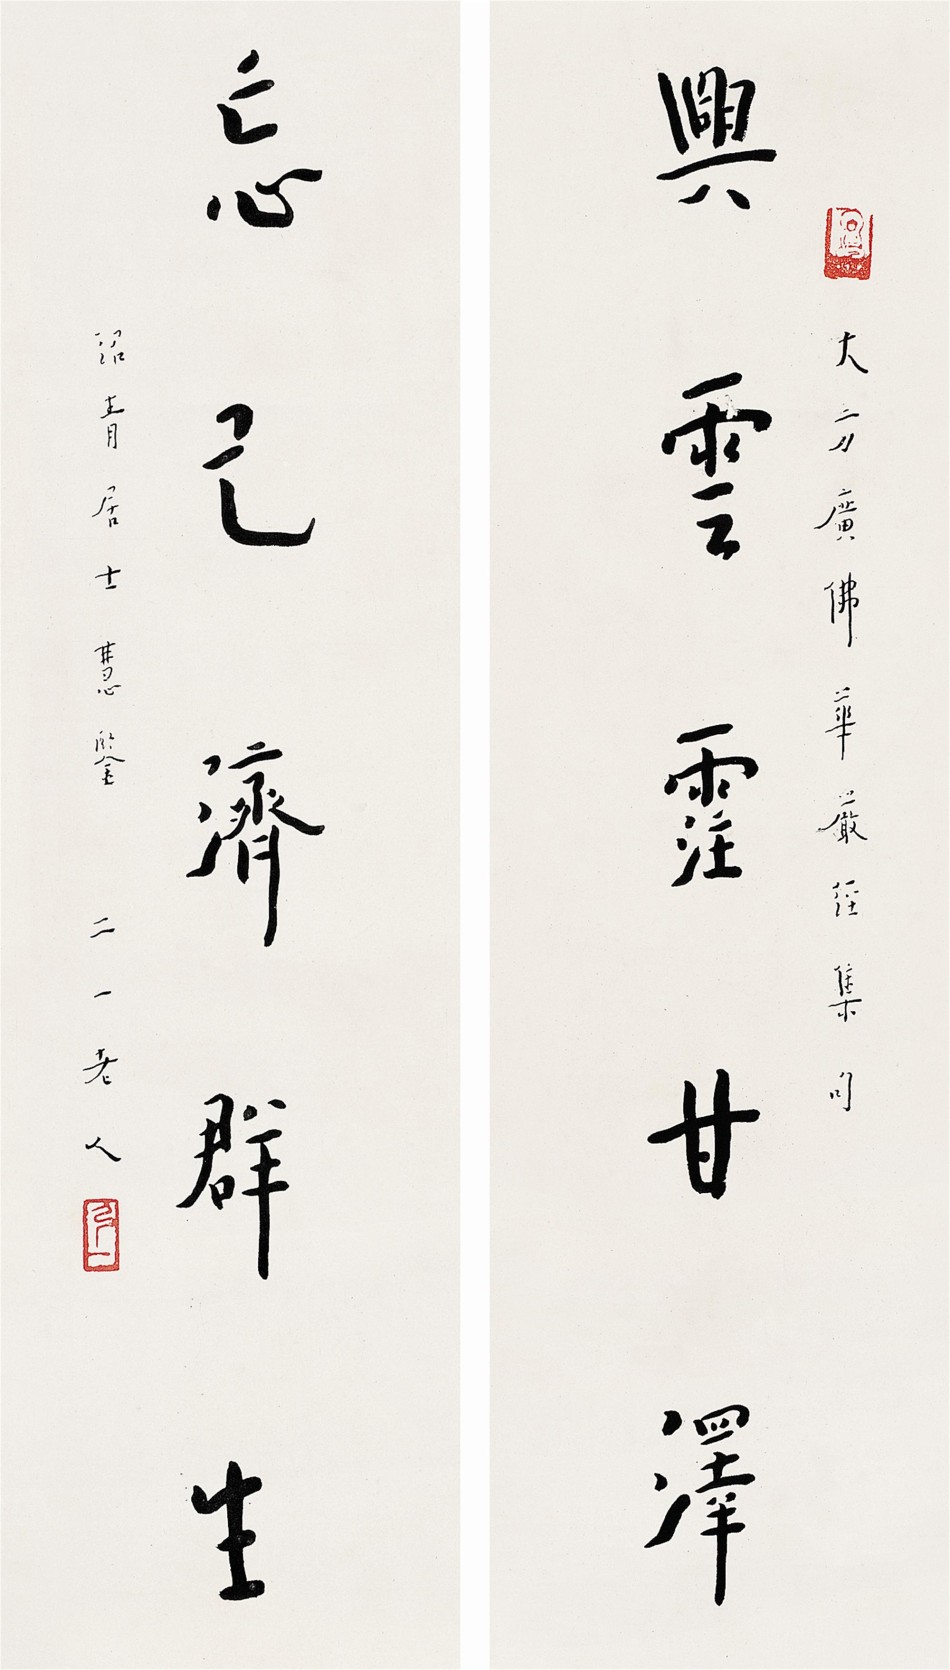 大方廣佛華嚴經集句
興雲霔甘澤
忘己濟群生
紹青居士慧鑒 二一老人